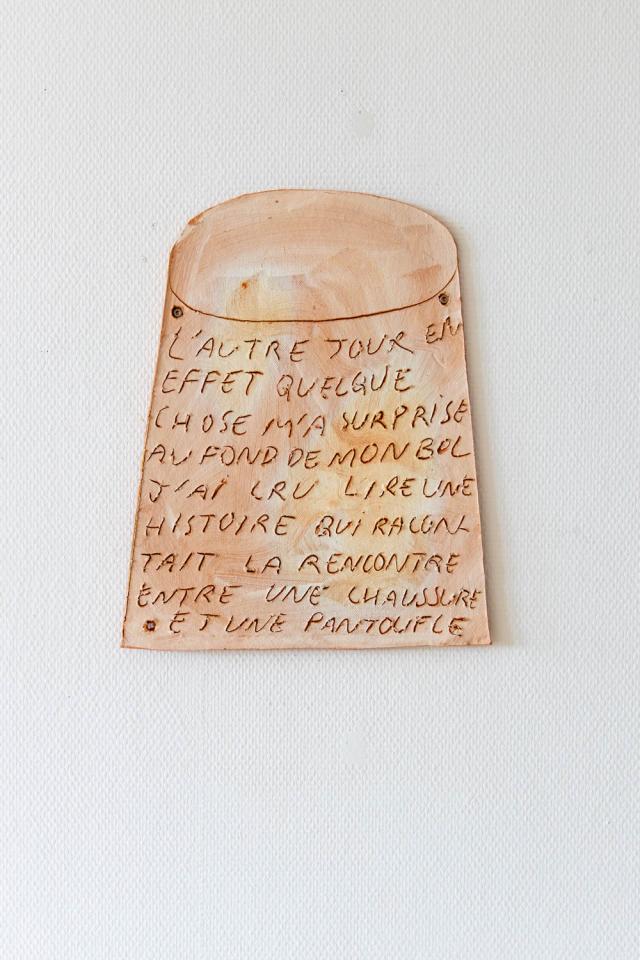 L'AUTRE JOUR EN
EFFET QUELQUE
CHOSE M'A SURPRISE
AU FOND DE MON BOL
J'AI CRU LIRE UNE
HISTOIRE QUI RACON-
TAIT LA RENCONTRE
ENTRE UNE CHAUSSURE
ET UNE PANTOUFLE